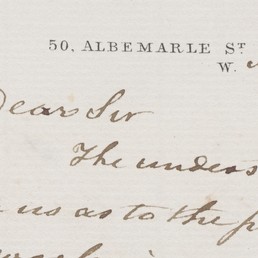 50, ALBEMARLE ST
W.
Dear Sir
The unders
us as to the p